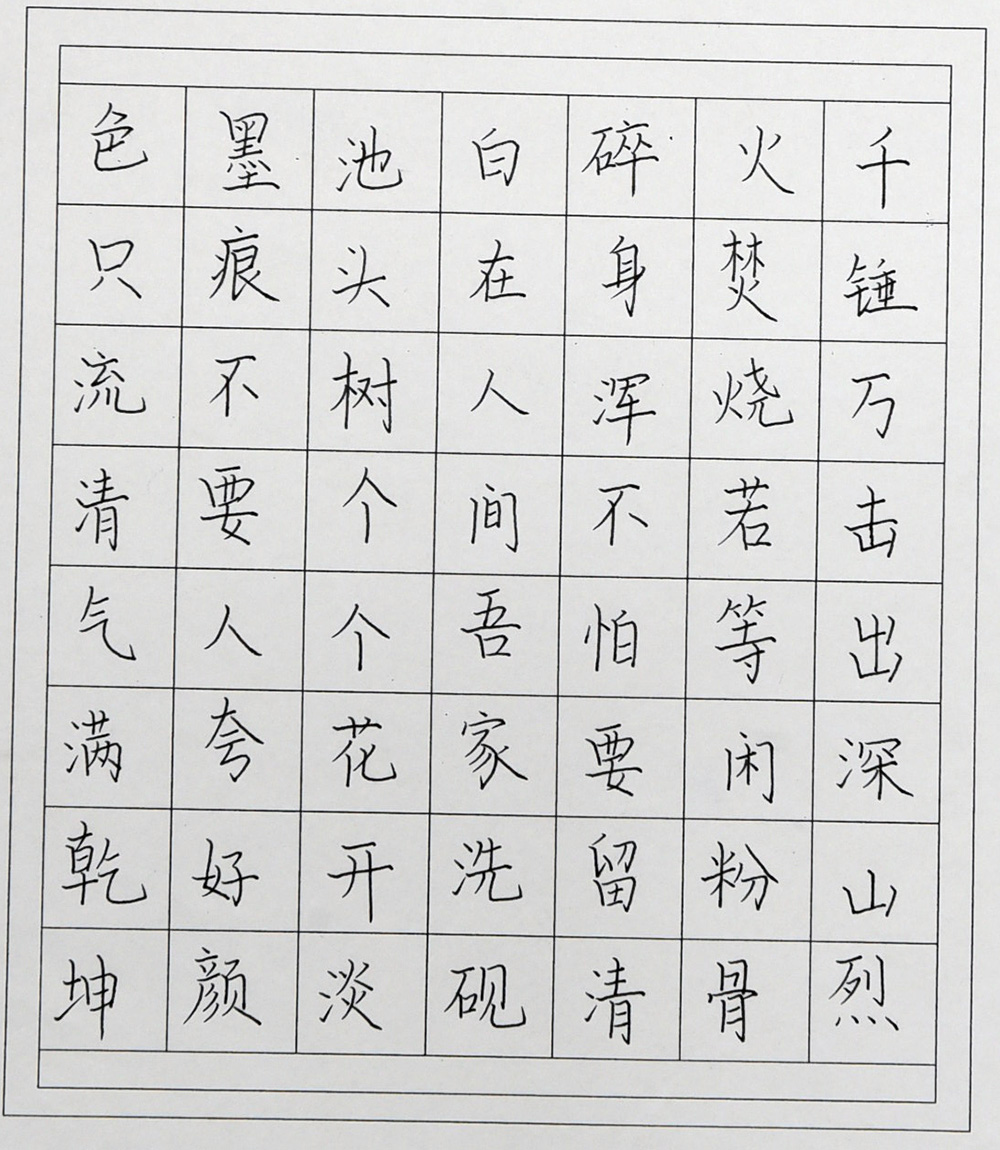 千锤万击出深山烈
火焚烧若等闲粉骨
碎身浑不怕要留清
白在人间吾家洗砚
池头树个个花开淡
墨痕不要人夸好颜
色只流清气满乾坤